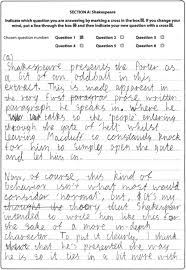 SECTION A: Shakespeare
Indicate which question you are answering by marking a cross in the box ☒. If you change your
mind, put a line through the box and then indicate your new question with a cross ☒.
Chosen question number: Question 1 Question 2 Question 3
Question 4 Question 5 Question 6
(a)
Shakespeare presents the Porter as
a bit of an oddball in this
extract. This is made apparent in
the very first paragraph prose written
paragraph he speaks in. Where he
talks to the 'people' entering
through the gate of hell whilst
leaving Macduff to constantly knock
for him to simply open the gate
and let him in.
Now, of course, this kind of
behavior isn't what most would
consider 'normal', but, it's my
theory that Shakespeare
intended to write him like this for
the sake of a more in-depth
character. To put it clearly, I think
that he's presented the way
he is so it ties in a bit more with